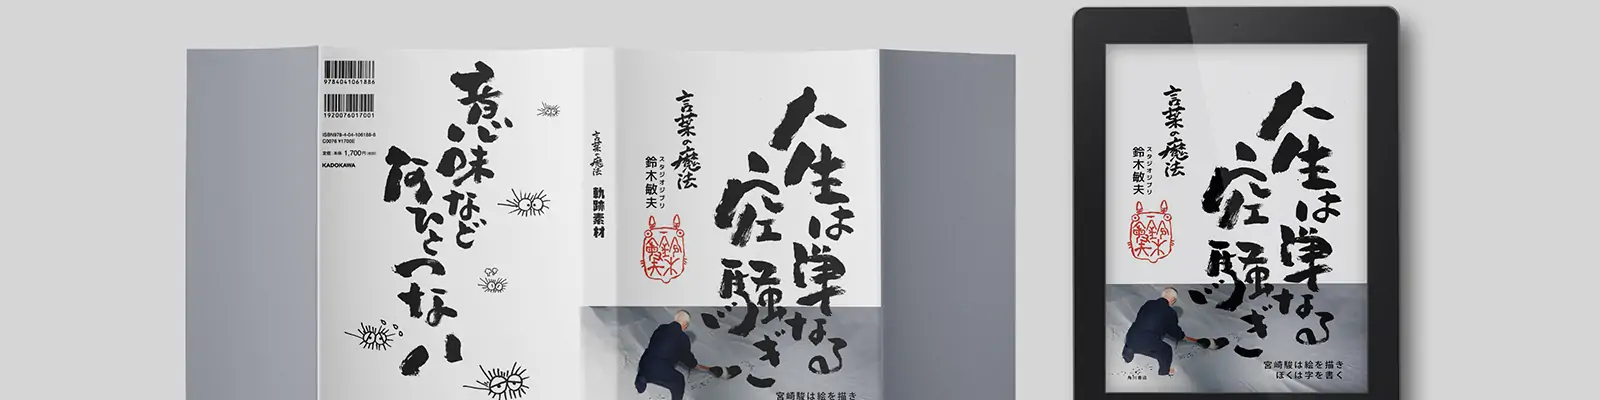 9784041061886
1920076017001
ISBN978-4-04-106188-6
C0076 ¥1700E
定価:本体1,700円(税別)
KADOKAWA
意味など
何ひとつない
言葉の魔法
軌跡素材
人生は単なる
空騒ぎ
言葉の魔法
スタジオジブリ
鈴木敏夫
鈴木敏夫
宮崎駿は絵を描き
人生は単なる
空騒ぎ
言葉の魔法
スタジオジブリ
鈴木敏夫
鈴木敏夫
宮崎駿は絵を描き
ぼくは字を書く
角川書店